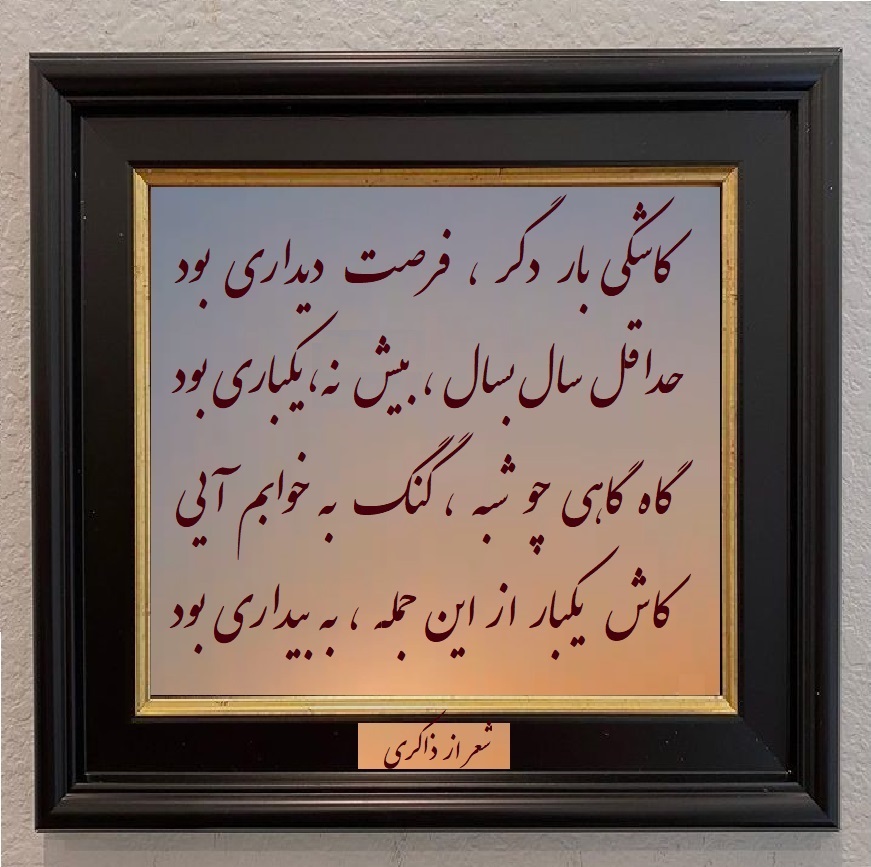 کاشکی بار دگر ، فرصت دیداری بود
حداقل سال بسال ، بیش نه، یکباری بود
گاه گاهی چو شبه ، گنگ به خوابم آیی
کاش یکبار از این جمله ، به بیداری بود
شعر از ذاکری